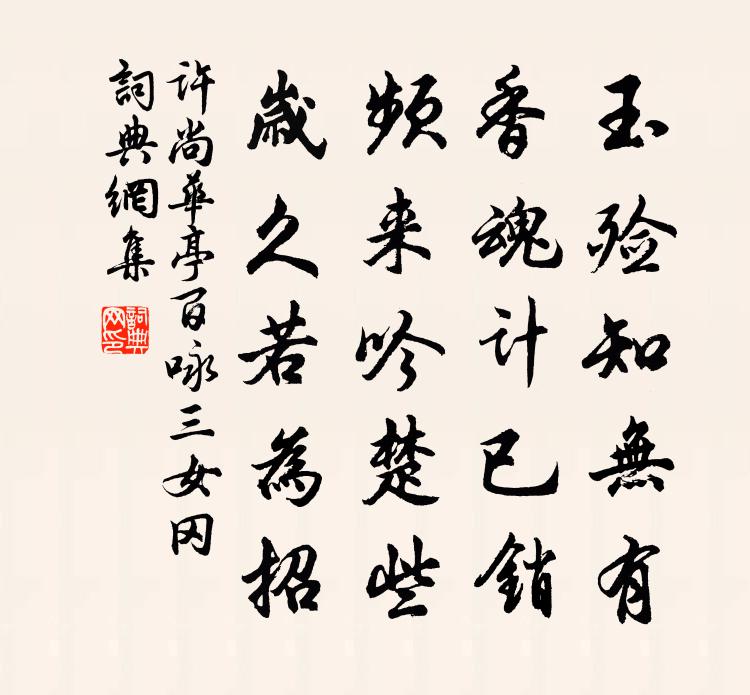 玉殓知無有
香魂计已銷
頻来吟楚些
歲久若為招
许尚華亭百咏三女冈
詞典網集
詞典网印